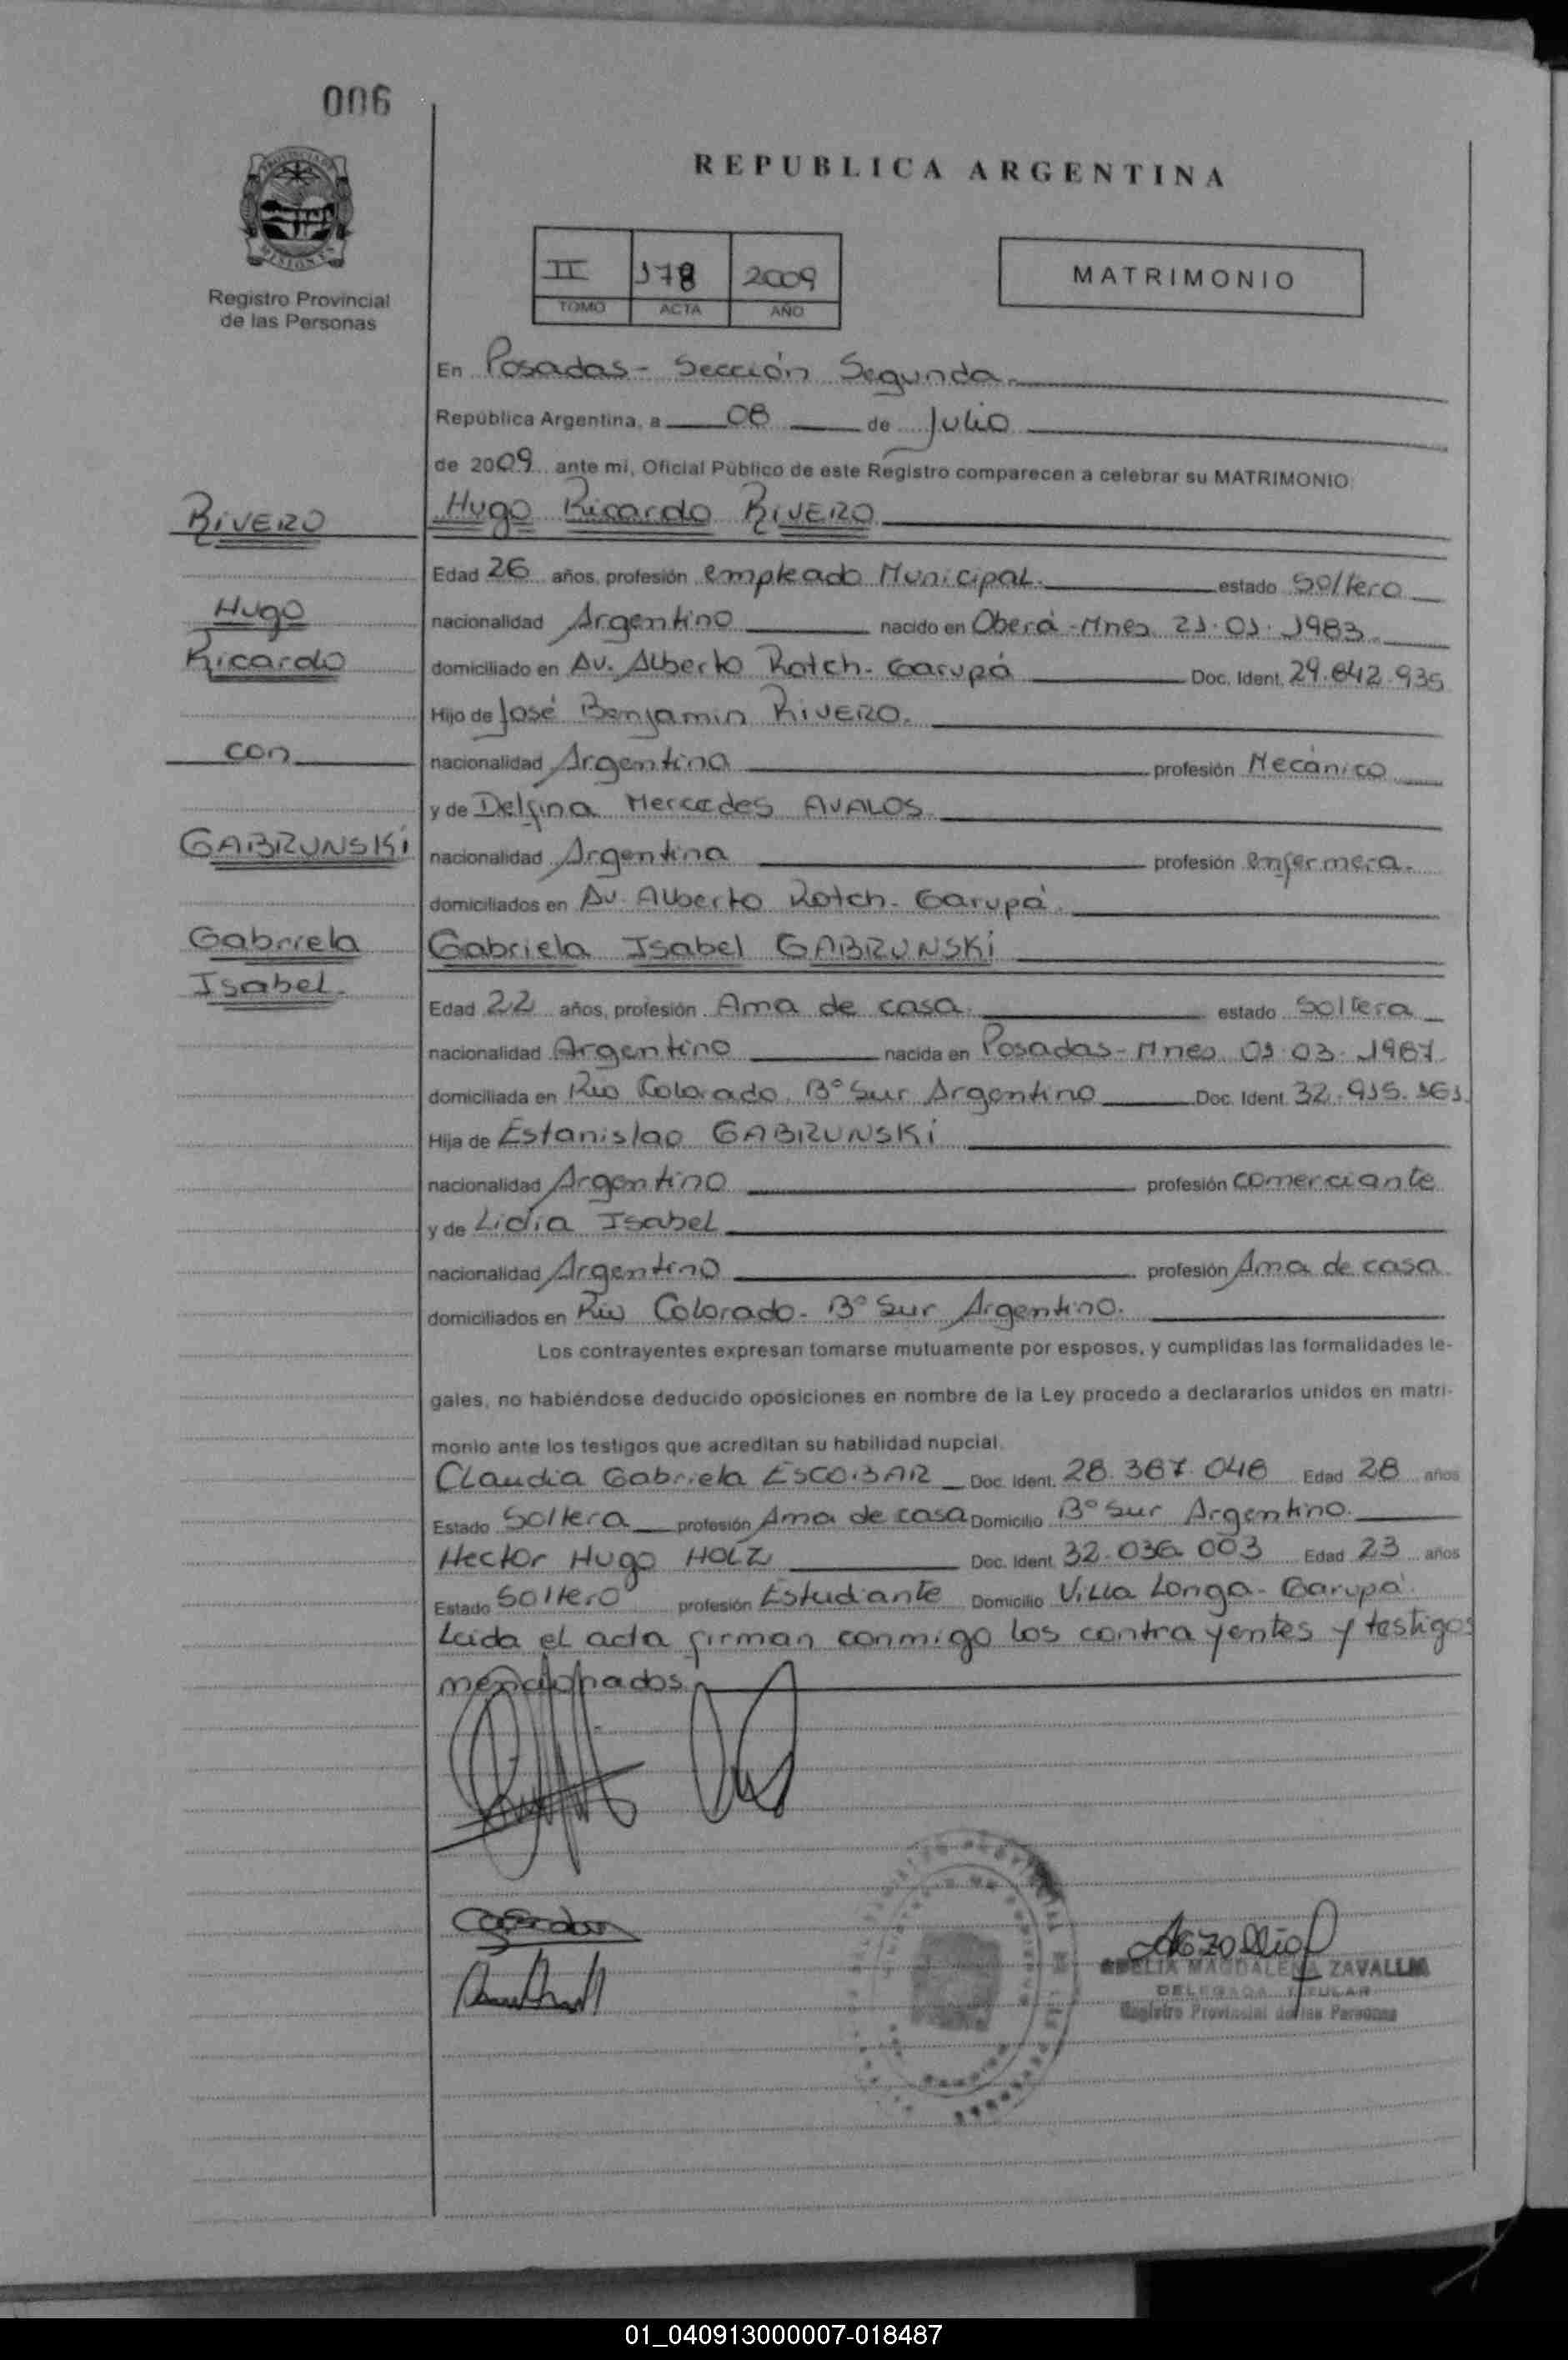 006
REPUBLICA ARGENTINA
Registro Provincial
de las Personas
II 178 2009
TOMO ACTA AÑO
MATRIMONIO
En Posadas - Sección Segunda.
República Argentina, a 08 de Julio
de 2009 ante mi, Oficial Público de este Registro comparecen a celebrar su MATRIMONIO:
RIVERO
Hugo Ricardo RIVERO
Edad 26 años, profesión empleado Municipal. estado Soltero
Hugo
nacionalidad Argentino nacido en Oberá - Mnes 21.01.1983.
Ricardo
domiciliado en Av. Alberto Rotch - Garupá Doc. Ident. 29.842.935
Hijo de José Benjamin RIVERO.
con
nacionalidad Argentina profesión Mecánico
y de Delfina Mercedes AVALOS
GABRUNSKI
nacionalidad Argentina profesión enfermera.
domiciliados en Av. Alberto Rotch - Garupá.
Gabriela
Gabriela Isabel GABRUNSKI
Isabel.
Edad 22 años, profesión Ama de casa. estado Soltera
nacionalidad Argentino nacida en Posadas - Mnes 01.03.1987
domiciliada en Rio Colorado. B° Sur Argentino Doc. Ident. 32.915.161.
Hija de Estanislao GABRUNSKI
nacionalidad Argentino profesión comerciante
y de Lidia Isabel
nacionalidad Argentino profesión Ama de casa
domiciliados en Rio Colorado - B° Sur Argentino.
Los contrayentes expresan tomarse mutuamente por esposos, y cumplidas las formalidades le-
gales, no habiéndose deducido oposiciones en nombre de la Ley procedo a declararlos unidos en matri-
monio ante los testigos que acreditan su habilidad nupcial.
Claudia Gabriela ESCOBAR Doc. Ident. 28.387.048 Edad 28 años
Estado Soltera profesión Ama de casa Domicilio B° Sur Argentino.
Hector Hugo HOLZ Doc. Ident. 32.036.003 Edad 23 años
Estado Soltero profesión Estudiante Domicilio Villa Longa - Garupá.
Leida el acta firman conmigo los contrayentes y testigos
mencionados.
MAGDALENA ZAVALLIA
DELEGADA TITULAR
Registro Provincial de las Personas
01_040913000007-018487